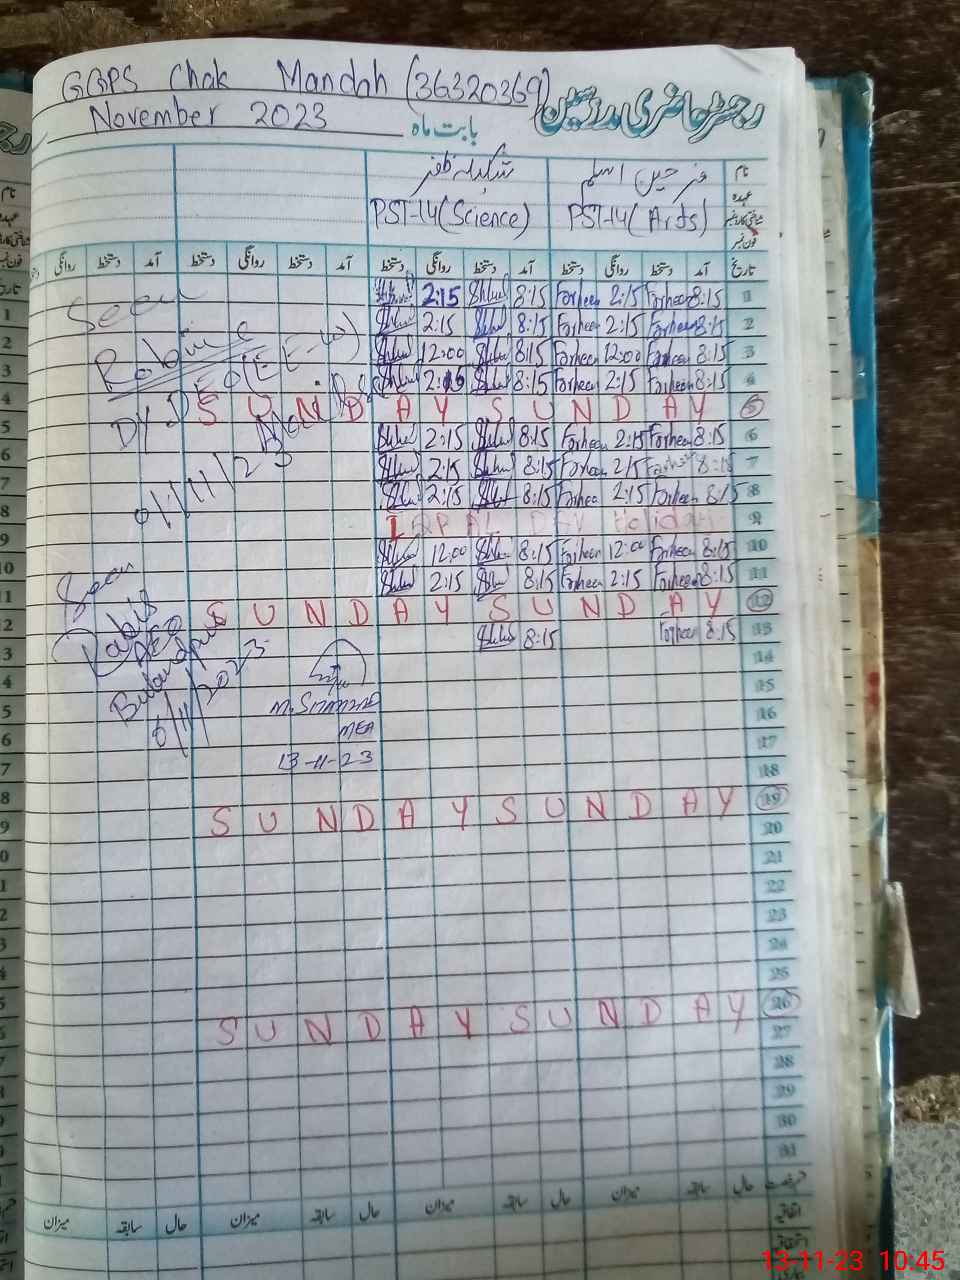 GGPS Chak Mandah (36320369)
رجسٹر حاضری مدرسین
November 2023 بابت ماہ
نام فرحین اسلم شکیلہ ظفر
عہدہ PST-14 (Arts) PST-14 (Science)
فون نمبر
تاریخ آمد دستخط روانگی دستخط آمد دستخط روانگی دستخط آمد دستخط روانگی دستخط آمد دستخط روانگی
1 8:15 Farheen 2:15 Farheen 8:15 2:15
2 8:15 Farheen 2:15 Farheen 8:15 2:15
3 8:15 Farheen 12:00 Farheen 8:15 12:00
4 8:15 Farheen 2:15 Farheen 8:15
5 SUNDAY SUNDAY
6 8:15 Farheen 2:15 Farheen 8:15 2:15
7 8:15 2:15 Farheen 8:15 2:15
8 8:15 Farheen 2:15 Farheen 8:15 2:15
9 IQBAL DAY Holiday
10 8:15 Farheen 12:00 Farheen 8:15 12:00
11 8:15 Farheen 2:15 Farheen 8:15 2:15
12 SUNDAY SUNDAY
13 8:15 Farheen 8:15
14
15
16
17
18
19 SUNDAY SUNDAY
20
21
22
23
24
25
26 SUNDAY SUNDAY
27
28
29
30
31
Seen
DY DEO (EE-W)
01/11/23
Seen
AEO
/11/2023
MEA
13-11-23
حال سابقہ میزان حال سابقہ میزان حال سابقہ میزان حال سابقہ میزان
اتفاقیہ
13-11-23 10:45